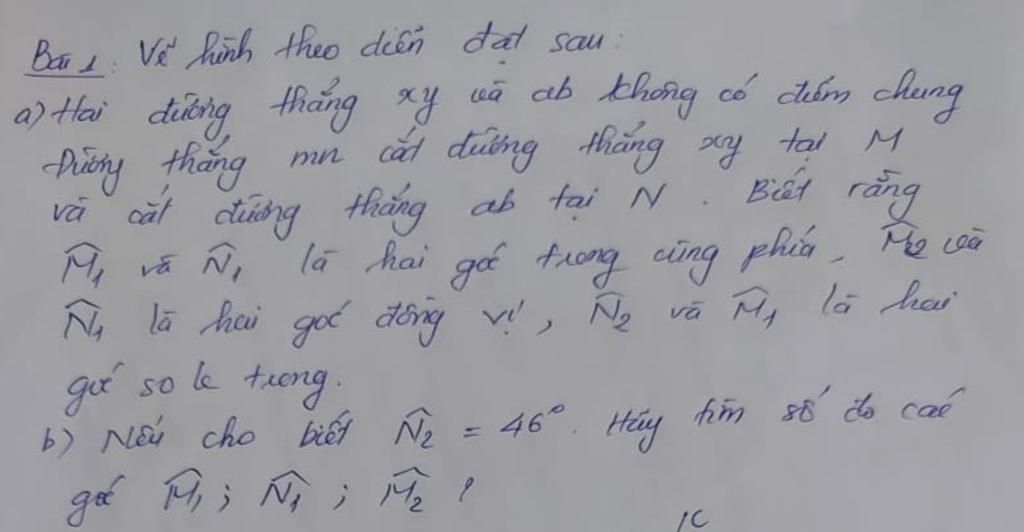 Bài 1: Vẽ hình theo diễn đạt sau:
a) Hai đường thẳng xy và ab không có điểm chung
Đường thẳng mn cắt đường thẳng xy tại M
và cắt đường thẳng ab tại N. Biết rằng
M̂₁ và N̂₁ là hai góc trong cùng phía, M̂₂ và
N̂₁ là hai góc đồng vị, N̂₂ và M̂₁ là hai
góc so le trong.
b) Nếu cho biết N̂₂ = 46°. Hãy tìm số đo các
góc M̂₁; N̂₁; M̂₂?